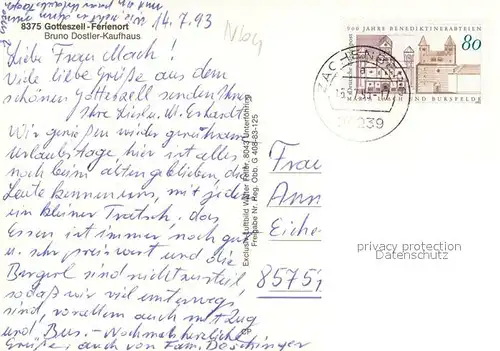 14.7.93
8375 Gotteszell-Ferienort
Bruno Dostler-Kaufhaus
Liebe Frau Mach!
Viele liebe Grüße aus dem
schönen Gotteszell senden Ihnen
Ihre Liesl u. W. Erhardt
Wir genießen wieder geruhsame
Urlaubstage hier ist alles
noch beim alten geblieben, die
Leute kennen uns, mit jedem
ein kleiner Tratsch, das
Essen ist immer noch gut
u. sehr preiswert und die
Bergerl sind nicht zu steil,
sodaß wir viel unterwegs
sind, vor allem auch mit Zug
und Bus. - Nochmals herzliche
Grüße, auch von Fam. Döschinger
Exclusiv Luftbild Walter Feiler, 8043 Unterföhring
Freigabe Nr. Reg. Obb. G 408-83-125
900 JAHRE BENEDIKTINERABTEIEN
80
MARIA LAACH UND BURSFELDE
ZACHENB
239
Frau
Ann
Eiche
85751
privacy protection
Datenschutz